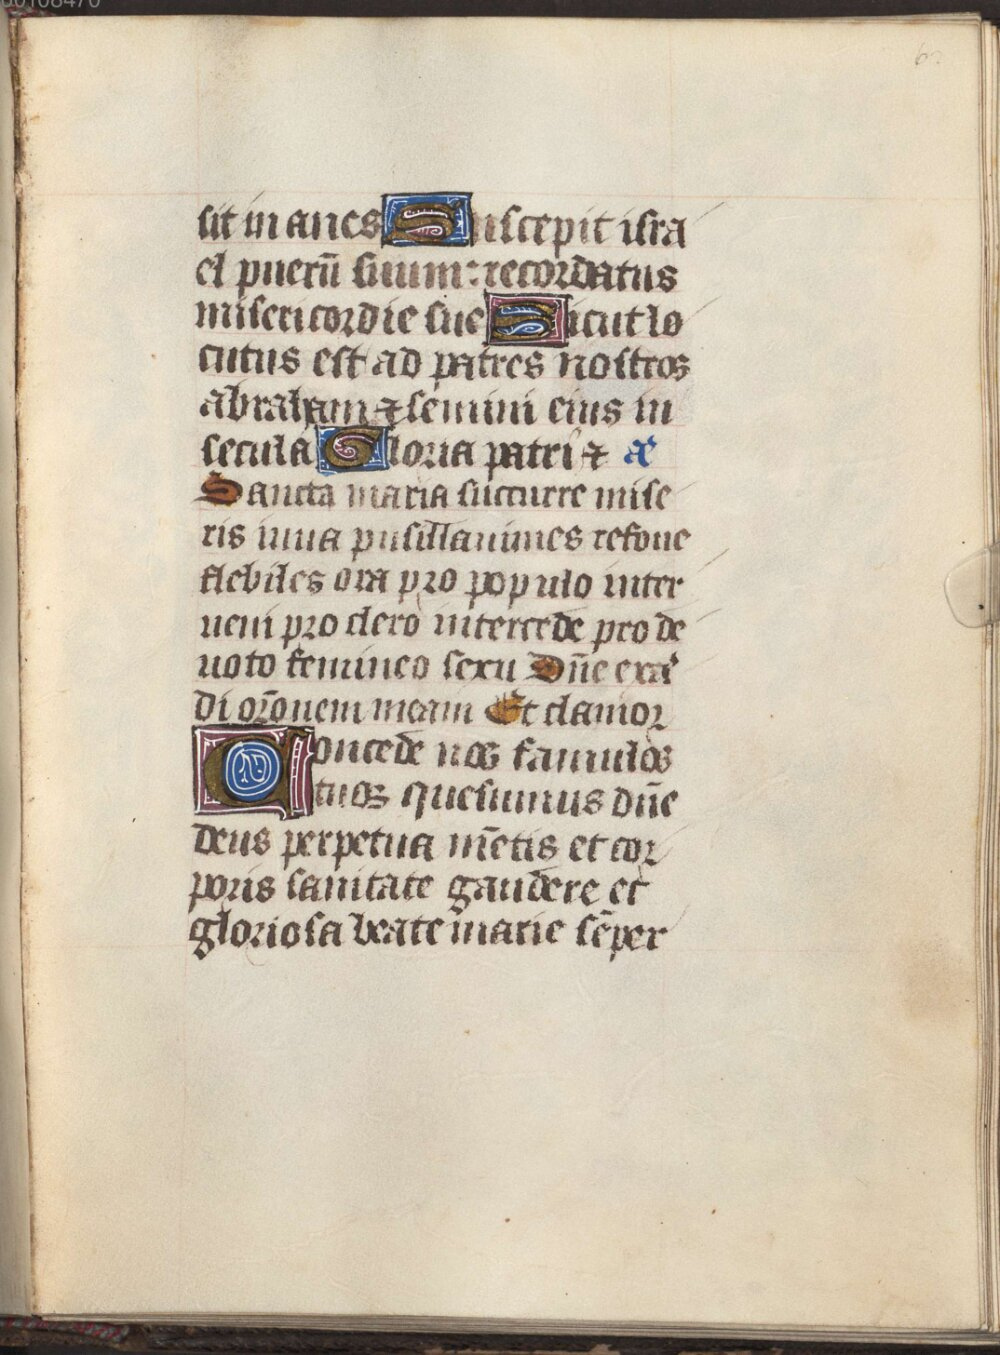 sit inanes Suscepit isra
el puerū suum: recordatus
misericordie sue Sicut lo
cutus est ad patres nostros
abraham ⁊ semini eius in
secula Gloria patri ⁊ añ
Sancta maria succurre mise
ris iuua pusillanimes refoue
flebiles ora pro populo inter
ueni pro clero intercede pro de
uoto femineo sexu Dñe exā
di orōnem meam Et clamor
Concede nos famulos
tuos quesumus dñe
deus perpetua mētis et cor
poris sanitate gaudere et
gloriosa beate marie sēper